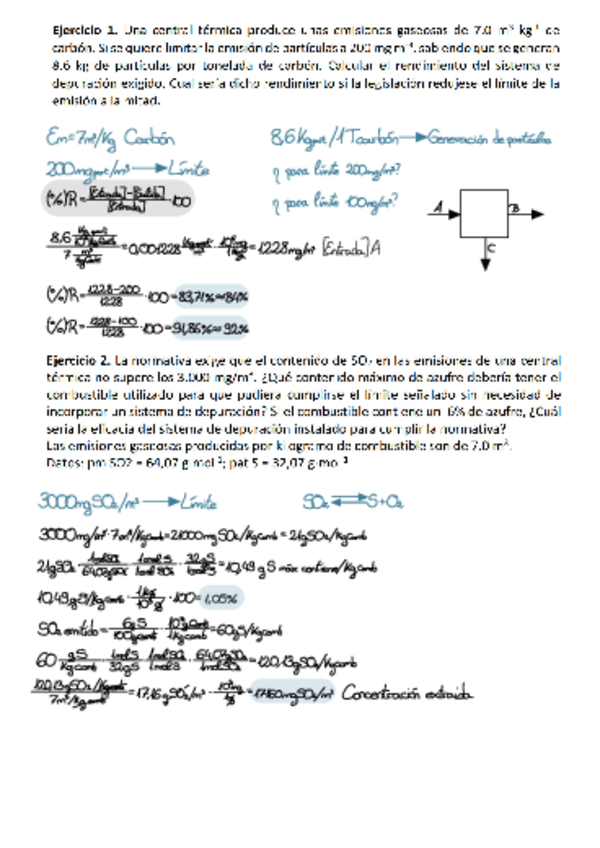 Ejercicio 1. Una central térmica produce unas emisiones gaseosas de 7.0 m³ kg⁻¹ de
carbón. Si se quiere limitar la emisión de partículas a 200 mg m⁻³, sabiendo que se generan
8.6 kg de partículas por tonelada de carbón. Calcular el rendimiento del sistema de
depuración exigido. Cual sería dicho rendimiento si la legislación redujese el límite de la
emisión a la mitad.
Em=7m³/Kg Carbón
8,6 Kgpart/1Tcarbón → Generación de partículas
200mgpart/m³ → Límite
η para límite 200mg/m³?
(%)R = [Entrada]-[Salida]/[Entrada] · 100
η para límite 100mg/m³?
A
B
C
=1228mg/m³ [Entrada] A
(%)R = 1228-200/1228 · 100 = 83,71% ≈ 84%
(%)R = 1228-100/1228 · 100 = 91,86% ≈ 92%
Ejercicio 2. La normativa exige que el contenido de SO₂ en las emisiones de una central
térmica no supere los 3.000 mg/m³. ¿Qué contenido máximo de azufre debería tener el
combustible utilizado para que pudiera cumplirse el límite señalado sin necesidad de
incorporar un sistema de depuración? Si el combustible contiene un 6% de azufre, ¿Cuál
sería la eficacia del sistema de depuración instalado para cumplir la normativa?
Las emisiones gaseosas producidas por kilogramo de combustible son de 7.0 m³.
Datos: pm SO2 = 64,07 g mol⁻¹; pat S = 32,07 g mol⁻¹
3000mgSO₂/m³ → Límite
SO₂ ⇌ S+O₂
3000mg/m³ · 7m³/Kgcomb = 21000mg SO₂/Kgcomb = 21gSO₂/Kgcomb
21gSO₂ · 1molSO₂/64,07gSO₂ · 1molS/1molSO₂ · 32gS/1molS = 10,49 gS máx contiene/Kgcomb
10,49gS/Kgcomb · 1Kg/10³g · 100 = 1,05%
SO₂ emitido = 6gS/100gcomb · 10³gcomb/1Kgcomb = 60gS/Kgcomb
60 gS/Kgcomb · 1molS/32gS · 1molSO₂/1molS · 64,07gSO₂/1molSO₂ = 120,13gSO₂/Kgcomb
120,13gSO₂/Kgcomb/7m³/Kgcomb = 17,16 gSO₂/m³ · 10³mg/1g = 17160mgSO₂/m³ Concentración